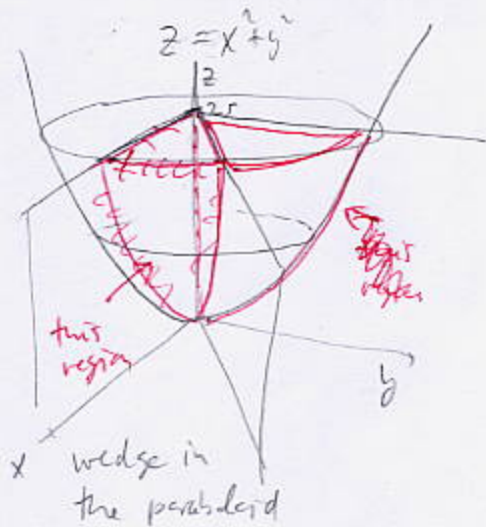 z = x² + y²
z
25
this
region
y
x
wedge in
the paraboloid